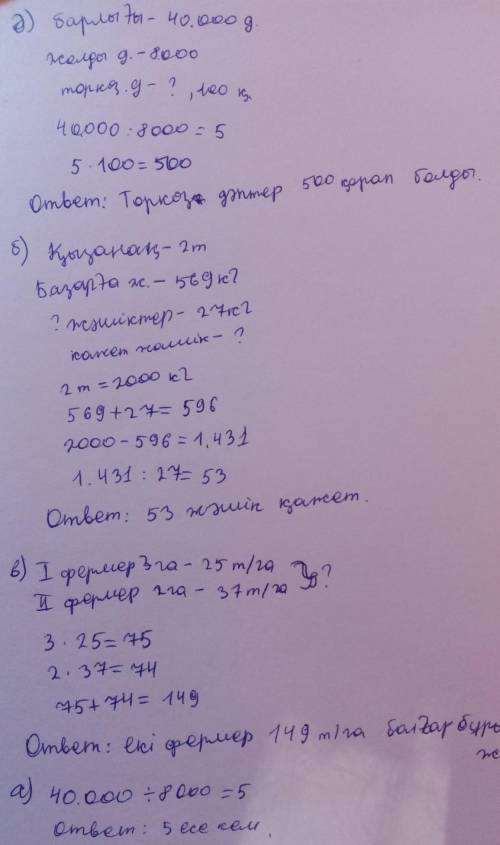 ә) барлығы - 40.000 д.
жолды д. - 8000
торкөз. д - ? , 100 қ
40.000 : 8000 = 5
5 · 100 = 500
Ответ: Торкөз дәптер 500 қорап болды.
б) Қызанақ - 2т
Базарға ж. - 569 кг
? жәшіктер - 27кг
қажет жәшік - ?
2т = 2000 кг
569 + 27 = 596
2000 - 596 = 1.431
1.431 : 27 = 53
Ответ: 53 жәшік қажет.
в) I фермер 3га - 25 т/га ?
II фермер 2га - 37 т/га
3 · 25 = 75
2 · 37 = 74
75 + 74 = 149
Ответ: екі фермер 149 т/га болғар бұры
ж
а) 40.000 ÷ 8000 = 5
Ответ: 5 есе кем.